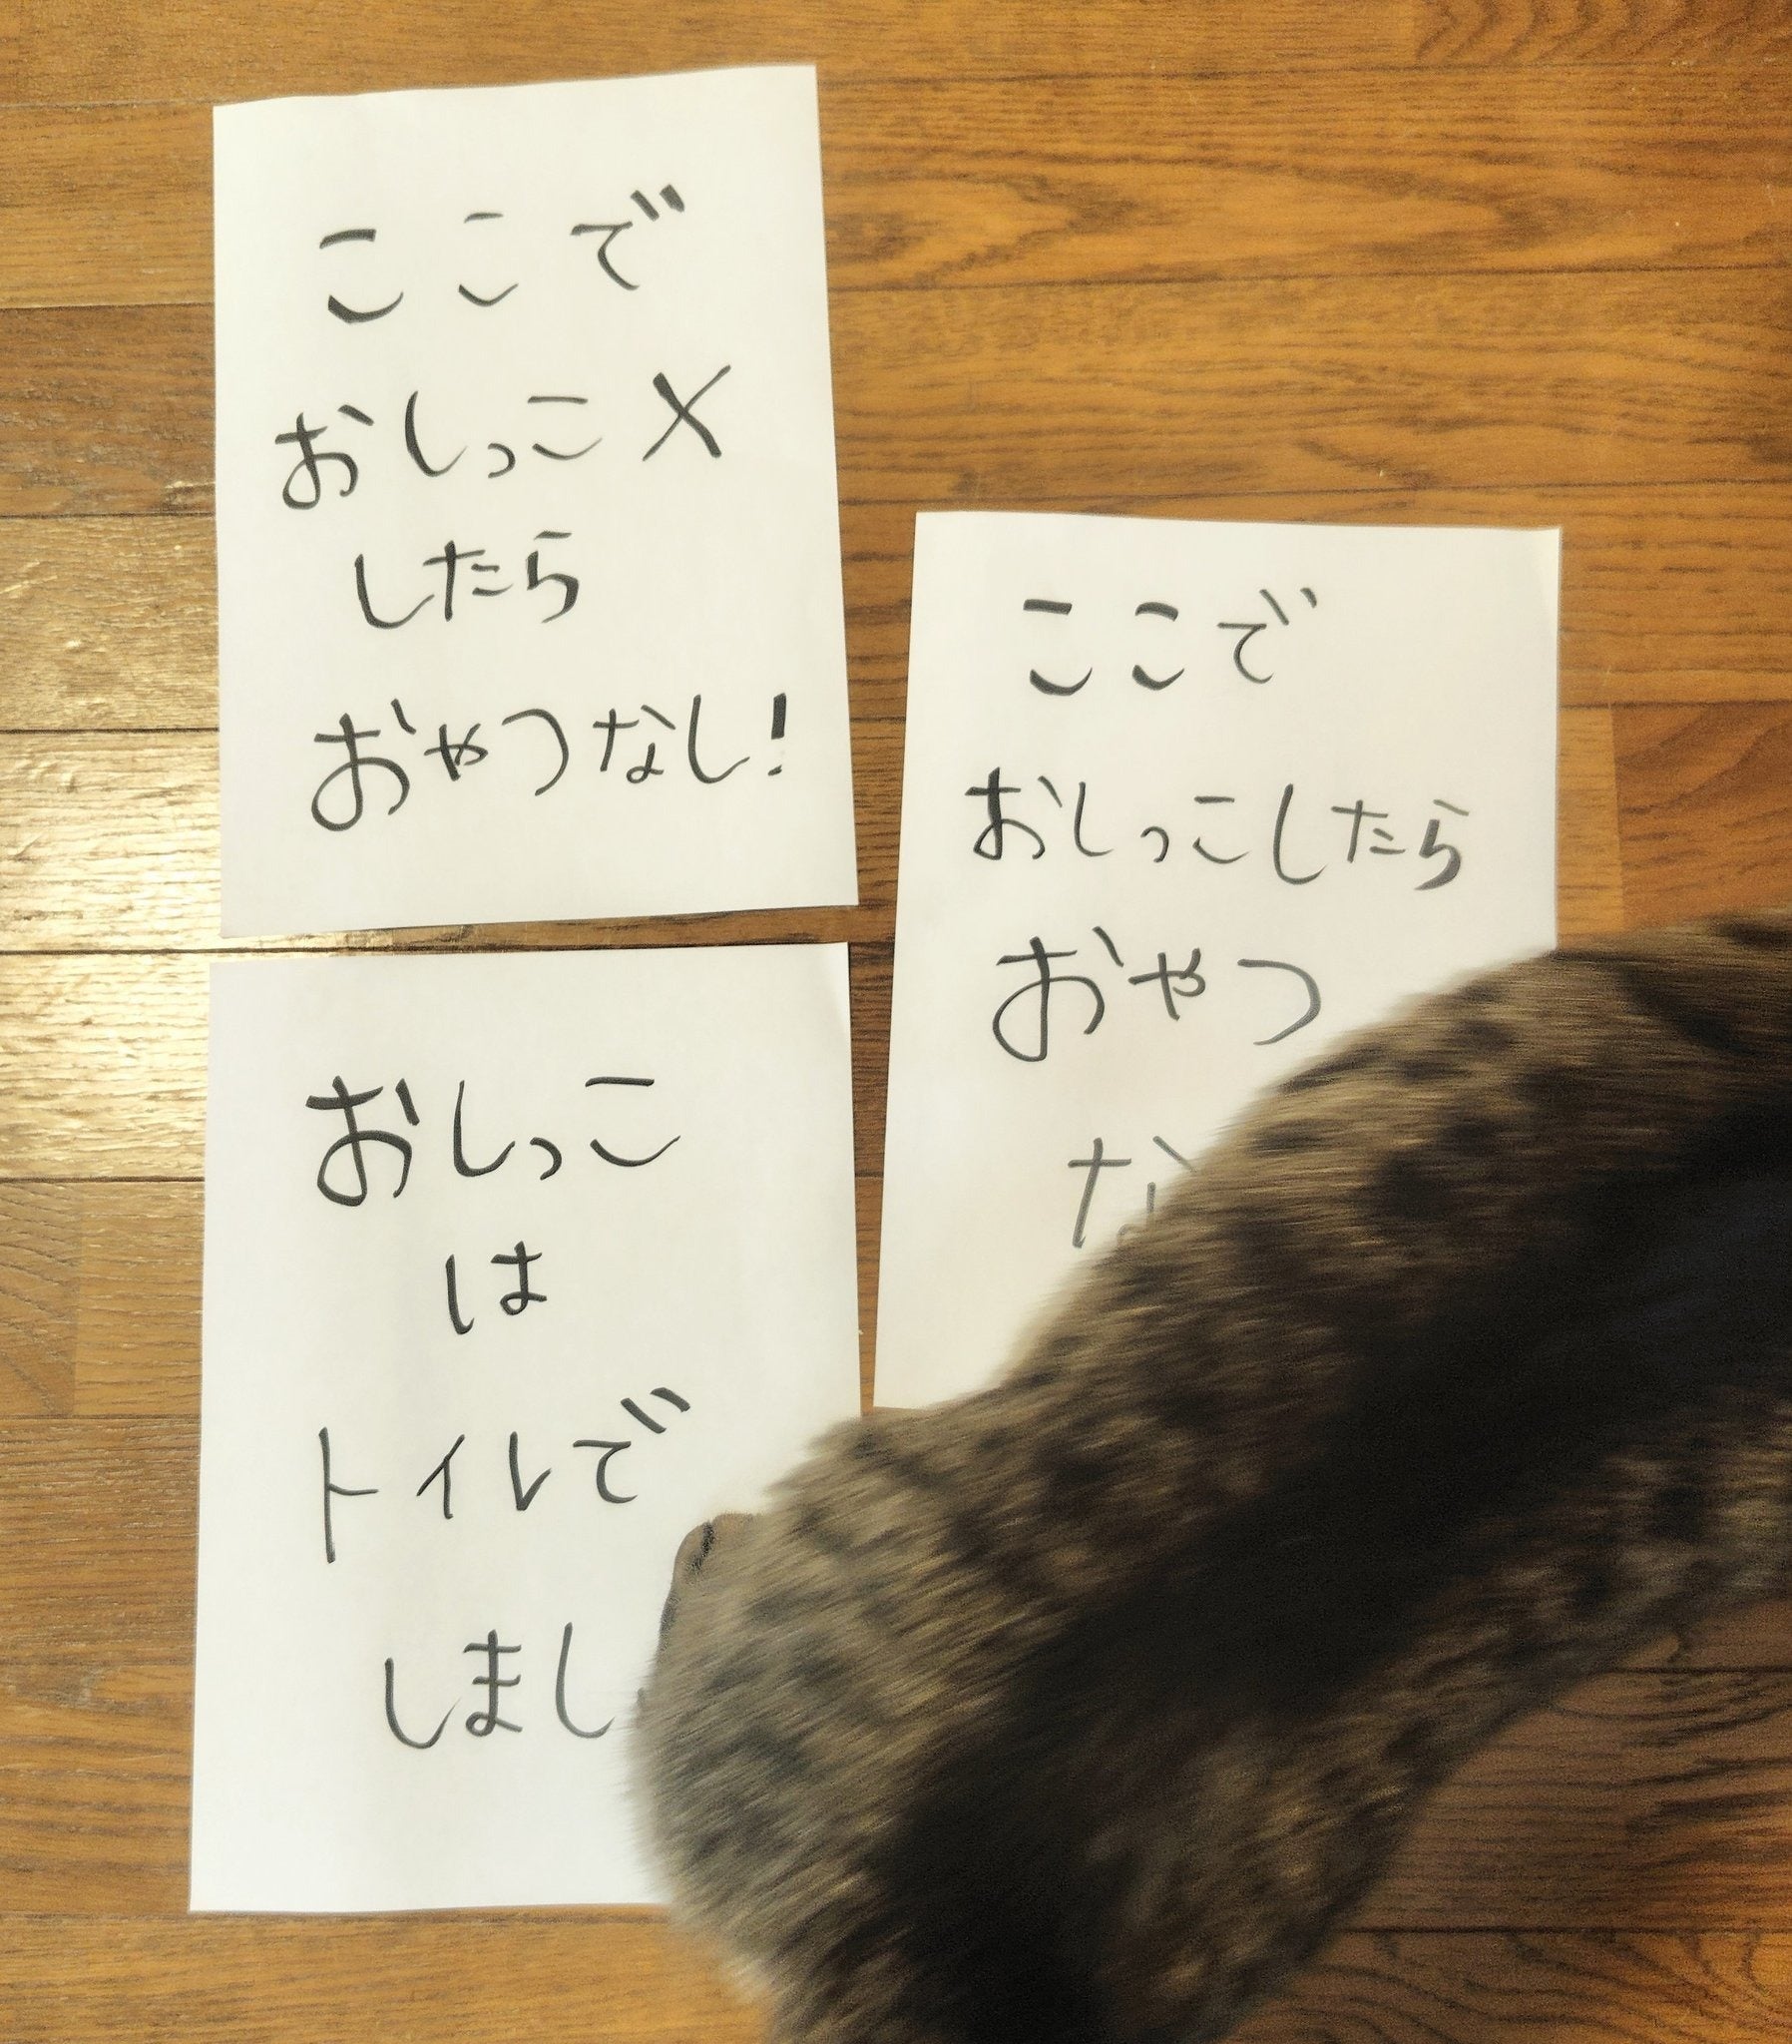 ここで
おしっこ×
したら
おやつなし!
ここで
おしっこしたら
おやつ
な
おしっこ
は
トイレで
しまし